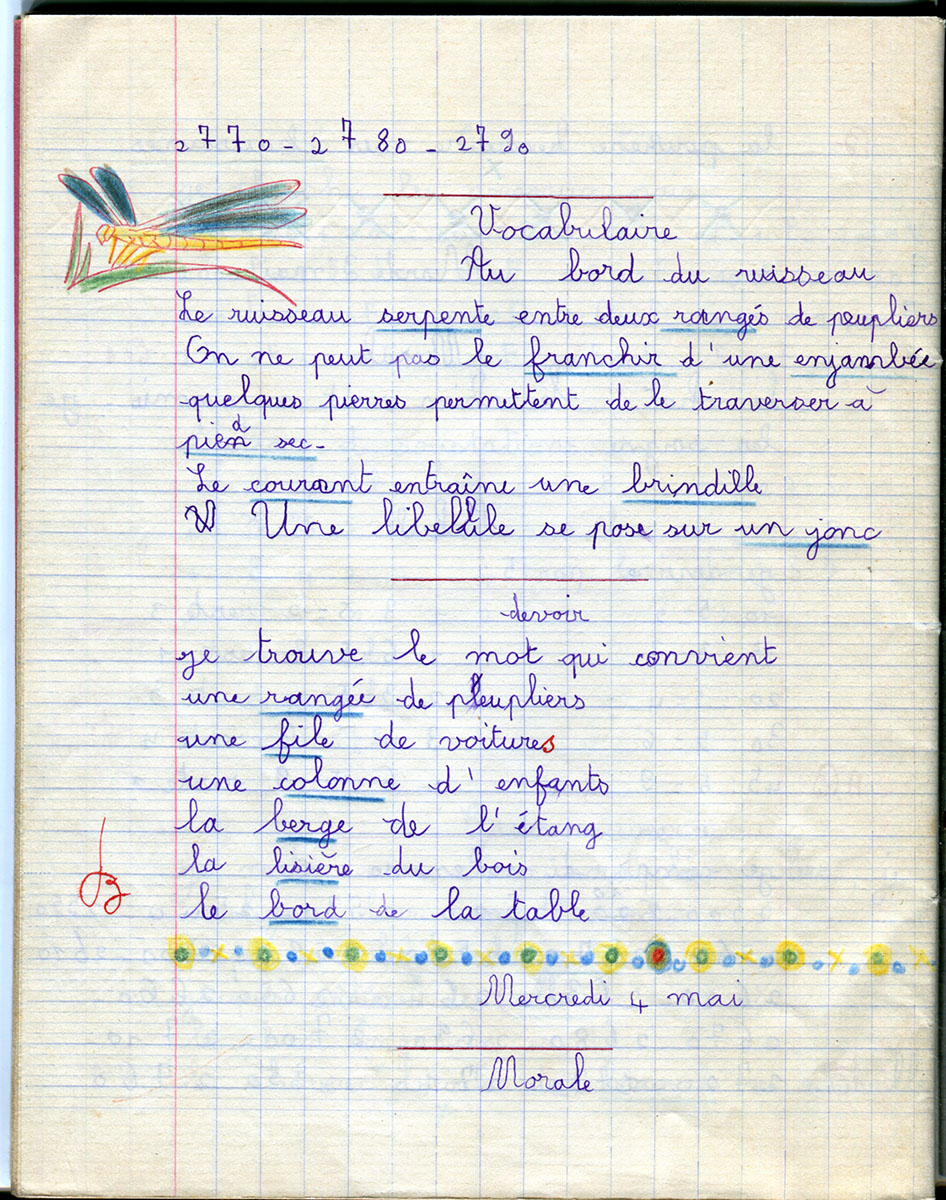 2770 - 2780 - 2790
Vocabulaire
Au bord du ruisseau
Le ruisseau serpente entre deux rangés de peupliers
On ne peut pas le franchir d'une enjambée
quelques pierres permettent de le traverser à
pied sec-
Le courant entraîne une brindille
Une libellule se pose sur un jonc
devoir
je trouve le mot qui convient
une rangée de peupliers
une file de voitures
une colonne d'enfants
la berge de l'étang
la lisière du bois
B
le bord de la table
Mercredi 4 mai
Morale